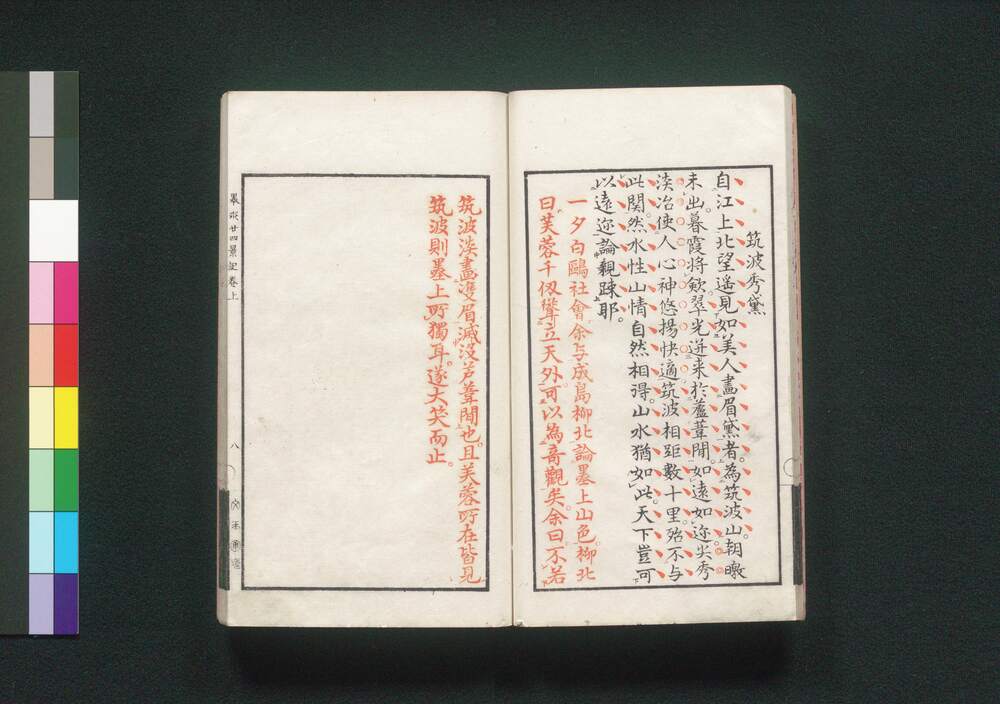 筑波秀黛
自江上北望遥見如美人畫眉黛者為筑波山朝暾
未出暮霞將斂翠光迸来於蘆葦間如遠如迩尖秀
淡冶使人心神悠揚快適筑波相距數十里殆不与
此関然水性山情自然相得山水猶如此天下豈可
以遠迩論親疎耶。
一夕白鷗社會余与成島柳北論墨上山色柳北
曰芙蓉千仭聳立天外可以為竒觀矣余曰不若
筑波淡畫雙眉滅没芦葦間也。且芙蓉所在皆見
筑波則墨上所獨耳。遂大笑而止。
墨水廿四景記卷上
八